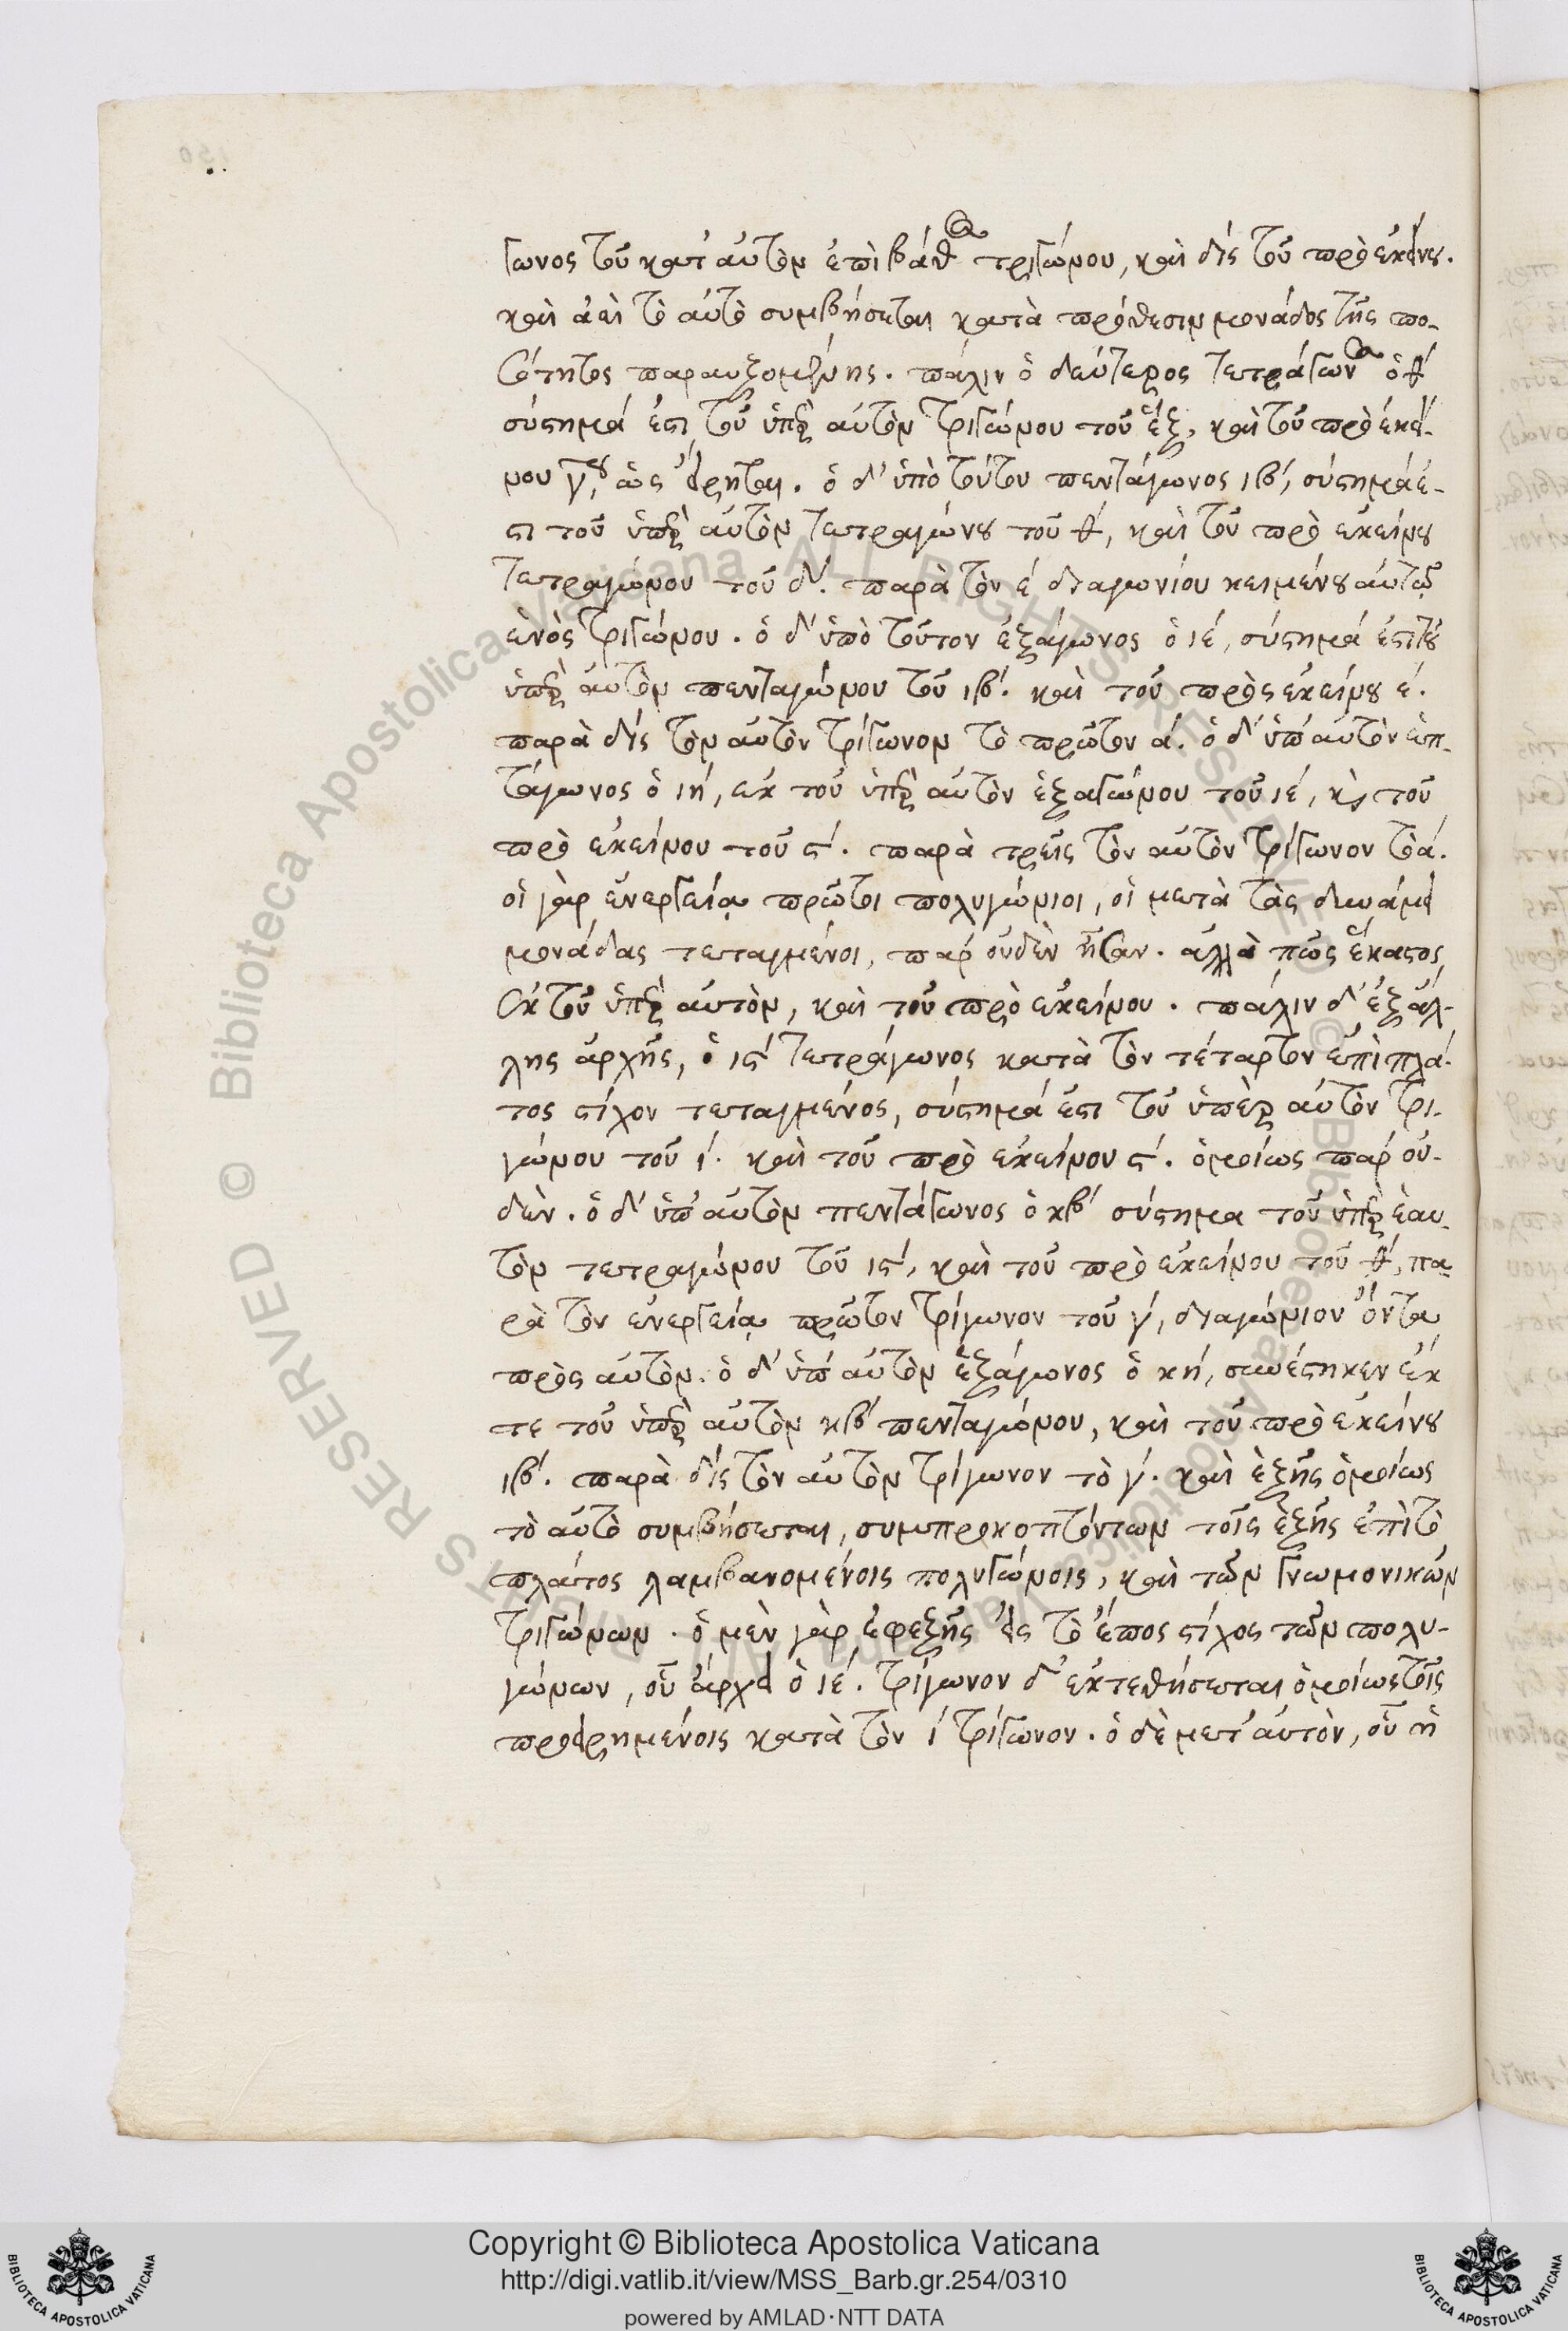 γωνος τοῦ κατ' αὐτὸν ἐπὶ βάθος τριγώνου, καὶ δὶς τοῦ πρὸ ἐκείνου.
καὶ ἀεὶ τὸ αὐτὸ συμβήσεται κατὰ πρόσθεσιν μονάδος τῆς πο-
σότητος παραυξομένης. πάλιν ὁ δεύτερος τετράγωνος ὁ θ'
σύστημά ἐστι τοῦ ὑπὲρ αὐτὸν τριγώνου τοῦ ἕξ, καὶ τοῦ πρὸ ἐκεί-
νου γ', ὡς εἴρηται. ὁ δ' ὑπὸ τοῦτον πεντάγωνος ιβ', σύστημά ἐ-
στι τοῦ ὑπὲρ αὐτὸν τετραγώνου τοῦ θ', καὶ τοῦ πρὸ ἐκείνου
τετραγώνου τοῦ δ'. παρὰ τὸν ἐ διαγωνίου κειμένου αὐτῷ
ἑνὸς τριγώνου. ὁ δ' ὑπὸ τοῦτον ἑξάγωνος ὁ ιε', σύστημά ἐστι τοῦ
ὑπὲρ αὐτὸν πενταγώνου τοῦ ιβ'. καὶ τοῦ πρὸς ἐκείνου ε'.
παρὰ δὶς τὸν αὐτὸν τρίγωνον τὸ πρῶτον α'. ὁ δ' ὑπ' αὐτὸν ἑπ-
τάγωνος ὁ ιη', ἐκ τοῦ ὑπὲρ αὐτὸν ἑξαγώνου τοῦ ιε', καὶ τοῦ
πρὸ ἐκείνου τοῦ ϛ'. παρὰ τρεῖς τὸν αὐτὸν τρίγωνον τὸ α'.
οἱ γὰρ ἐνεργείᾳ πρῶτοι πολυγώνιοι, οἱ μετὰ τὰς δυνάμει
μονάδας τεταγμένοι, παρ' οὐδὲν ἦσαν. ἀλλὰ πῶς ἕκαστος
ἐκ τοῦ ὑπὲρ αὐτὸν, καὶ τοῦ πρὸ ἐκείνου. πάλιν δ' ἐξ ἄλ-
λης ἀρχῆς, ὁ ιϛ' τετράγωνος κατὰ τὸν τέταρτον ἐπὶ πλά-
τος στίχον τεταγμένος, σύστημά ἐστι τοῦ ὑπὲρ αὐτὸν τρι-
γώνου τοῦ ι'. καὶ τοῦ πρὸ ἐκείνου ϛ'. ὁμοίως παρ' οὐ-
δὲν. ὁ δ' ὑπ' αὐτὸν πεντάγωνος ὁ κβ' σύστημα τοῦ ὑπὲρ ἑαυ-
τὸν τετραγώνου τοῦ ιϛ', καὶ τοῦ πρὸ ἐκείνου τοῦ θ', πα-
ρὰ τὸν ἐνεργείᾳ πρῶτον τρίγωνον τοῦ γ', διαγώνιον ὄντα
πρὸς αὐτὸν. ὁ δ' ὑπ' αὐτὸν ἑξάγωνος ὁ κη', συνέστηκεν ἔκ
τε τοῦ ὑπὲρ αὐτὸν κβ' πενταγώνου, καὶ τοῦ πρὸ ἐκείνου
ιβ'. παρὰ δὶς τὸν αὐτὸν τρίγωνον τὸ γ'. καὶ ἑξῆς ὁμοίως
τὸ αὐτὸ συμβήσεται, συμπροκοπτόντων τοῖς ἑξῆς ἐπὶ τὸ
πλάτος λαμβανομένοις πολυγώνοις, καὶ τῶν γνωμονικῶν
τριγώνων. ὁ μὲν γὰρ ἐφεξῆς εἰς τὸ ἔπος στίχος τῶν πολυ-
γώνων, οὗ ἄρχει ὁ ιε'. τρίγωνον δ' ἐκτεθήσεται ὁμοίως τοῖς
προειρημένοις κατὰ τὸν ι' τρίγωνον. ὁ δὲ μετ' αὐτὸν, οὗ ἡ
Copyright © Biblioteca Apostolica Vaticana
http://digi.vatlib.it/view/MSS_Barb.gr.254/0310
powered by AMLAD·NTT DATA
BIBLIOTECA APOSTOLICA VATICANA
BIBLIOTECA APOSTOLICA VATICANA